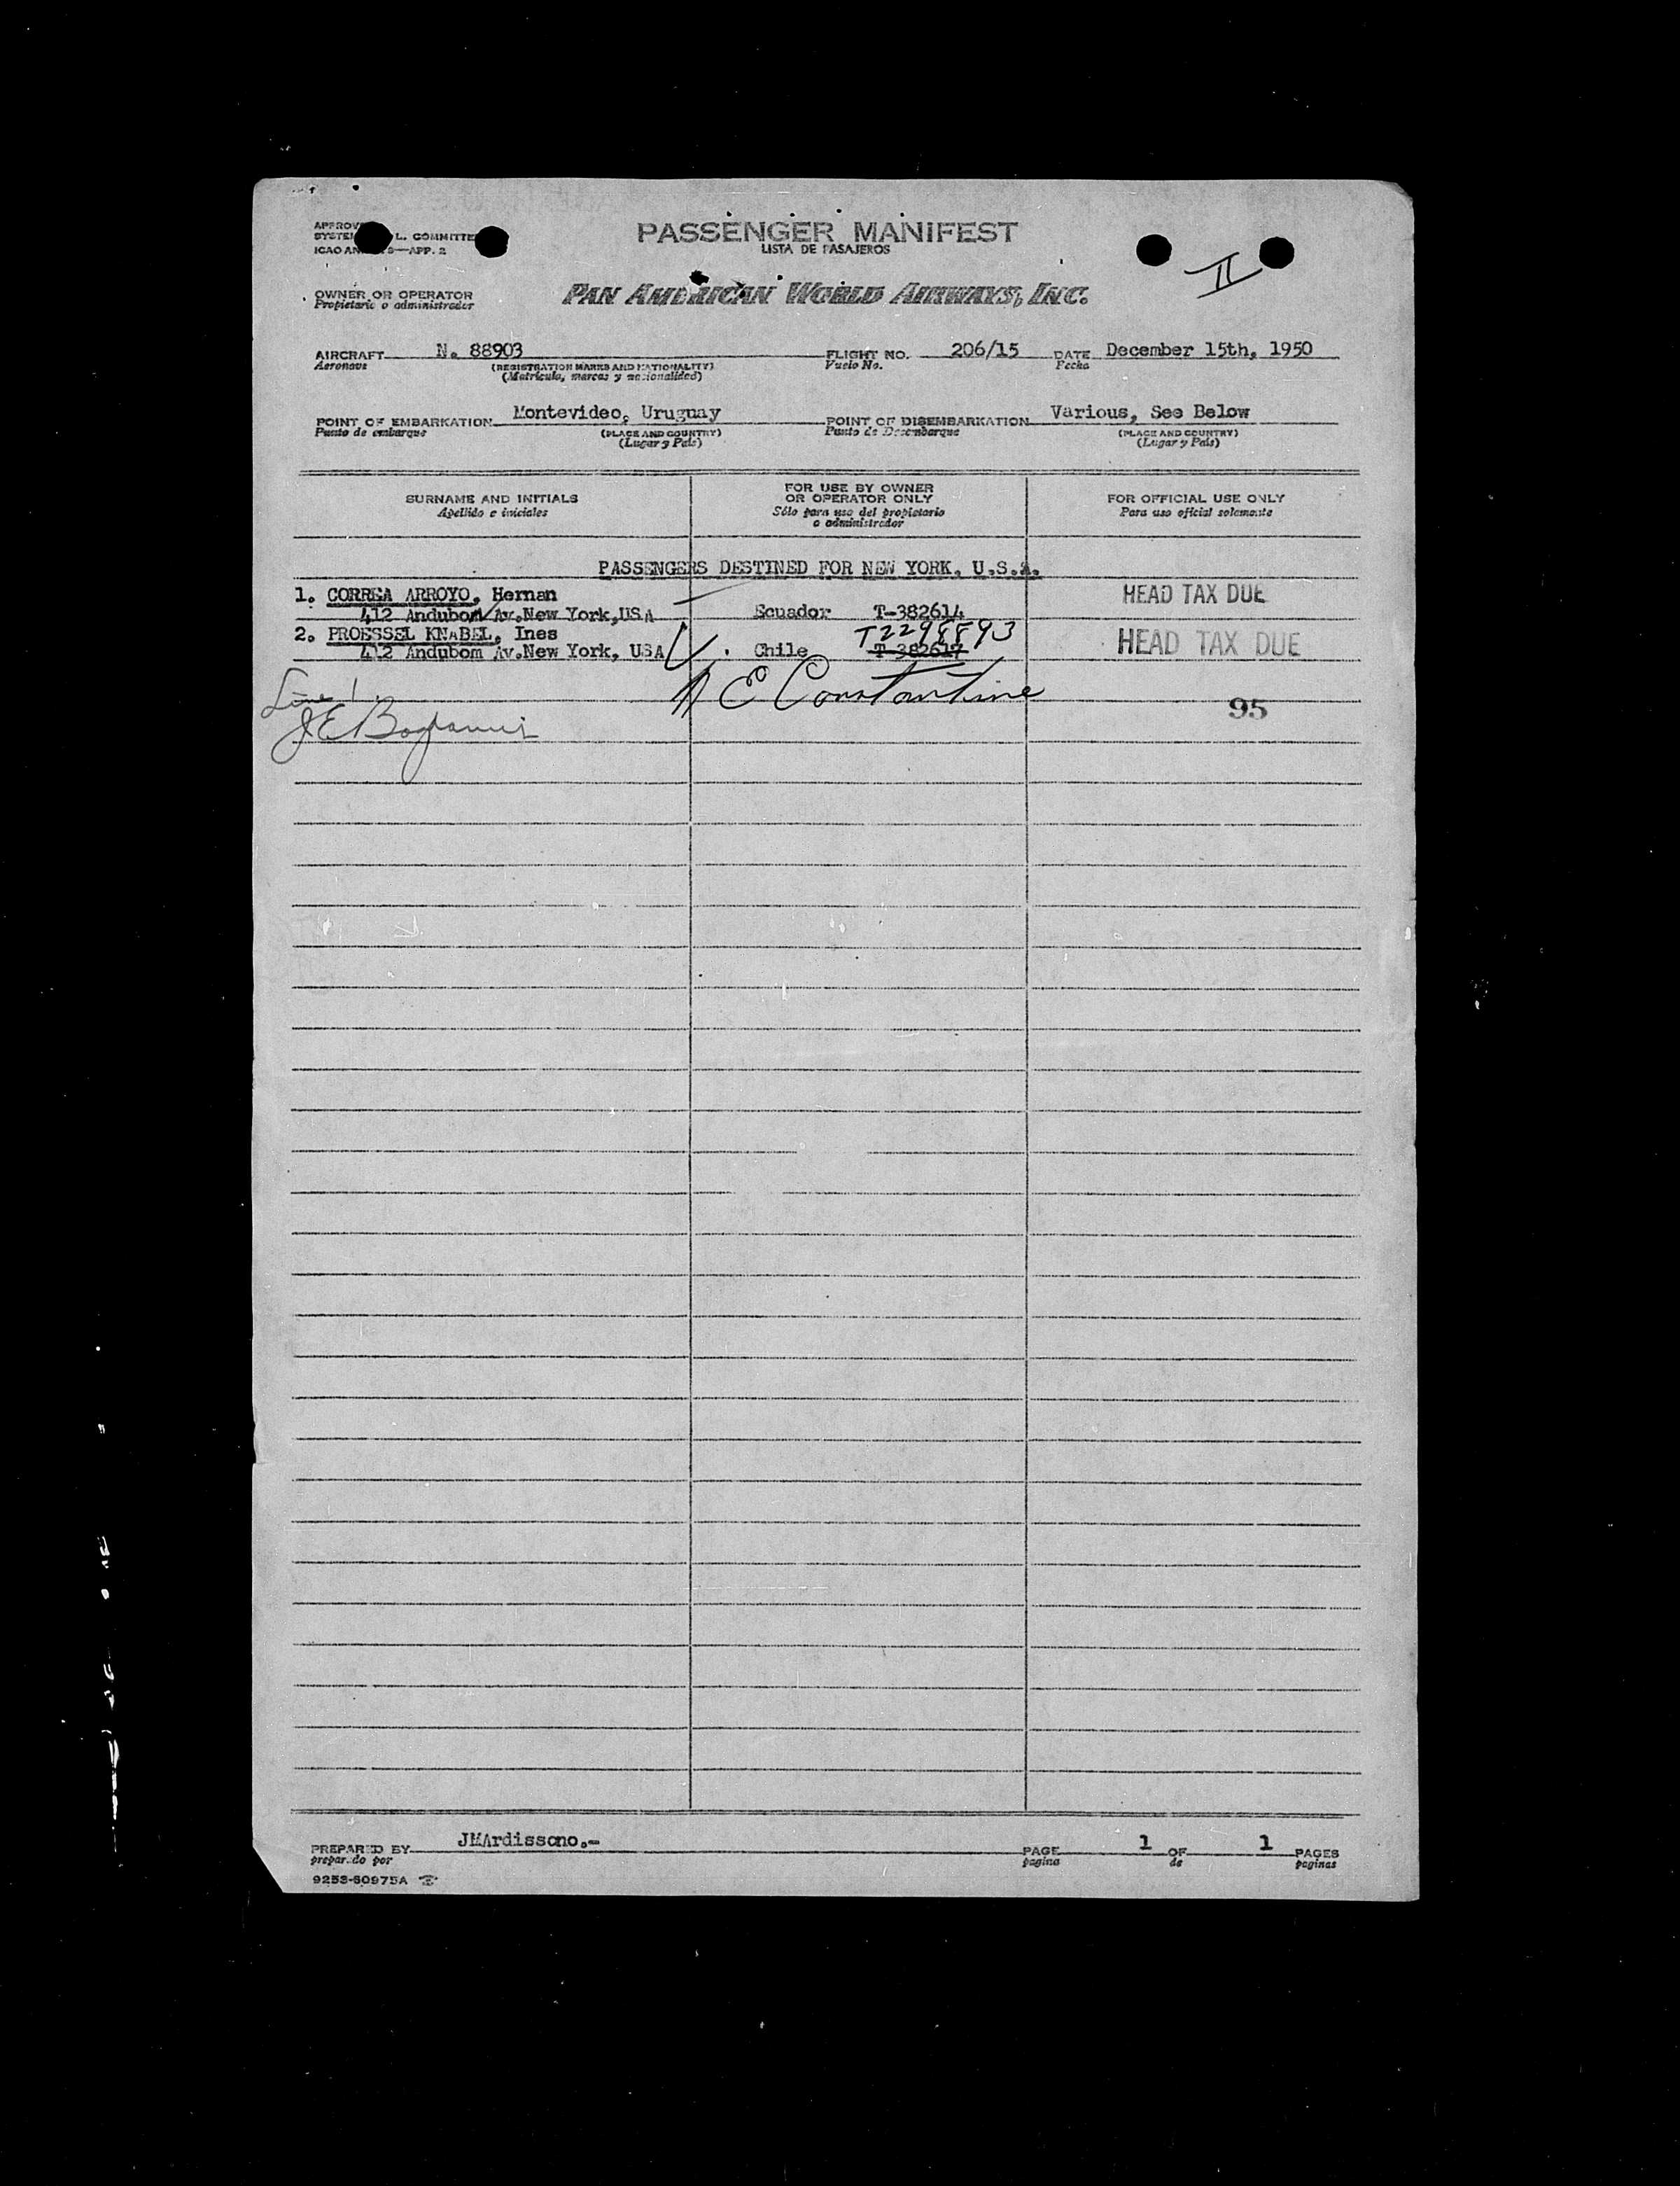 PASSENGER MANIFEST
LISTA DE PASAJEROS
II
OWNER OR OPERATOR
Propietario o administrador
PAN AMERICAN WORLD AIRWAYS, INC.
AIRCRAFT N. 88903 FLIGHT NO. 206/15 DATE December 15th, 1950
Aeronave (REGISTRATION MARKS AND NATIONALITY) Vuelo No. Fecha
(Matrícula, marcas y nacionalidad)
POINT OF EMBARKATION Montevideo, Uruguay POINT OF DISEMBARKATION Various, See Below
Punto de embarque (PLACE AND COUNTRY) Punto de Desembarque (PLACE AND COUNTRY)
(Lugar y País) (Lugar y País)
SURNAME AND INITIALS
Apellido e iniciales
FOR USE BY OWNER
OR OPERATOR ONLY
Sólo para uso del propietario
o administrador
FOR OFFICIAL USE ONLY
Para uso oficial solamente
PASSENGERS DESTINED FOR NEW YORK, U.S.A.
1. CORREA ARROYO, Hernan HEAD TAX DUE
412 Andubom Av.New York,USA Ecuador T-382614
2. PROESSEL KNABEL, Ines T2298893 HEAD TAX DUE
412 Andubom Av.New York, USA Chile T-382617
Line 1
E Constantine
95
PREPARED BY JMArdissono.-
preparado por
PAGE 1 OF 1 PAGES
pagina de paginas
9253-60975A